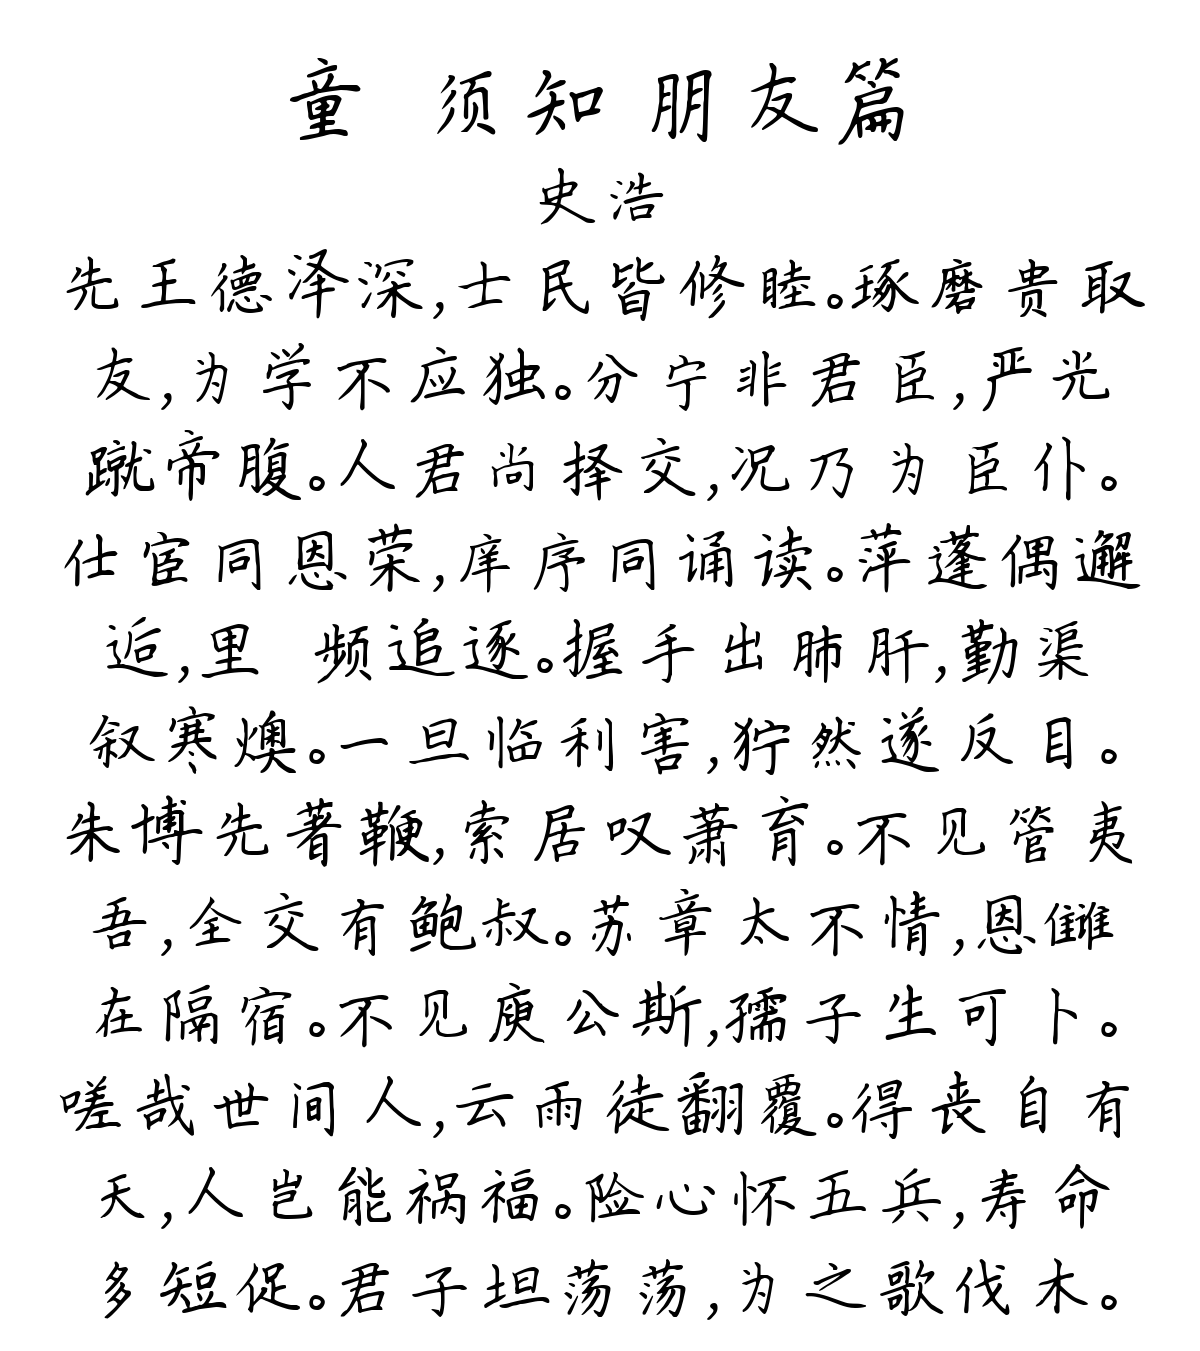 童 须知朋友篇
史浩
先王德泽深,士民皆修睦。琢磨贵取
友,为学不应独。分宁非君臣,严光
蹴帝腹。人君尚择交,况乃为臣仆。
仕宦同恩荣,庠序同诵读。萍蓬偶邂
逅,里 频追逐。握手出肺肝,勤渠
叙寒燠。一旦临利害,狞然遂反目。
朱博先著鞭,索居叹萧育。不见管夷
吾,全交有鲍叔。苏章太不情,恩雠
在隔宿。不见庾公斯,孺子生可卜。
嗟哉世间人,云雨徒翻覆。得丧自有
天,人岂能祸福。险心怀五兵,寿命
多短促。君子坦荡荡,为之歌伐木。